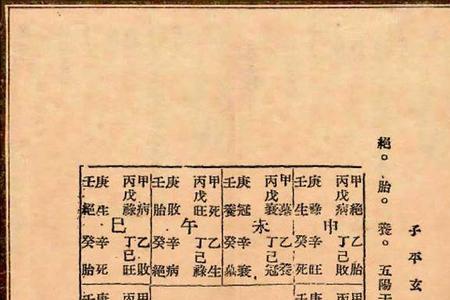 子平玄
絕。胎。養。五陽干
甲絕
丙戊病
庚祿
壬生
申
乙胎
丁己敗
辛旺
癸死
甲墓
丙戊衰
庚冠
壬養
未
乙養
丁己冠
辛衰
癸墓
甲死
丙戊旺
庚敗
壬胎
午
乙生
丁己
辛病
癸絕
甲病
丙戊祿
庚生
壬絕
巳
乙敗
丁己
辛死
癸胎